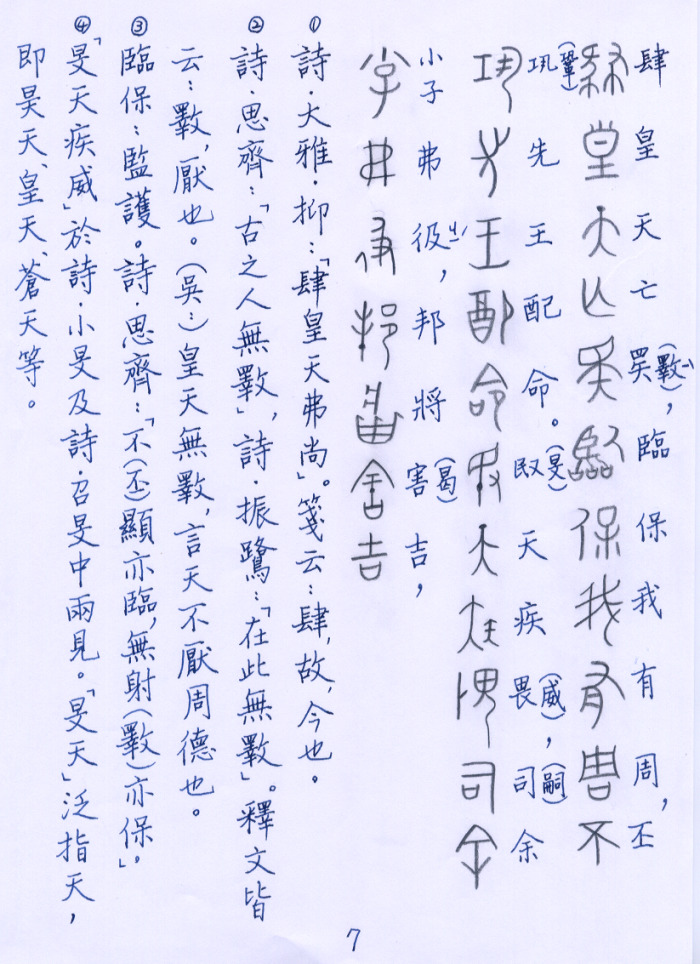 肆皇天亡(斁),臨保我有周,丕
巩(鞏)先王配命。敃(旻)天疾畏(威),司(嗣)余
小子弗彶,邦將害(曷)吉,
①詩.大雅.抑:「肆皇天弗尚」。箋云:肆,故,今也。
②詩.思齊:「古之人無斁」,詩.振鷺:「在此無斁」。釋文皆
云:斁,厭也。(吳:)皇天無斁,言天不厭周德也。
③臨保:監護。詩.思齊:「不(丕)顯亦臨,無射(斁)亦保」。
④「旻天疾威」於詩.小旻及詩.召旻中兩見。「旻天」泛指天,
即昊天、皇天、蒼天等。
7